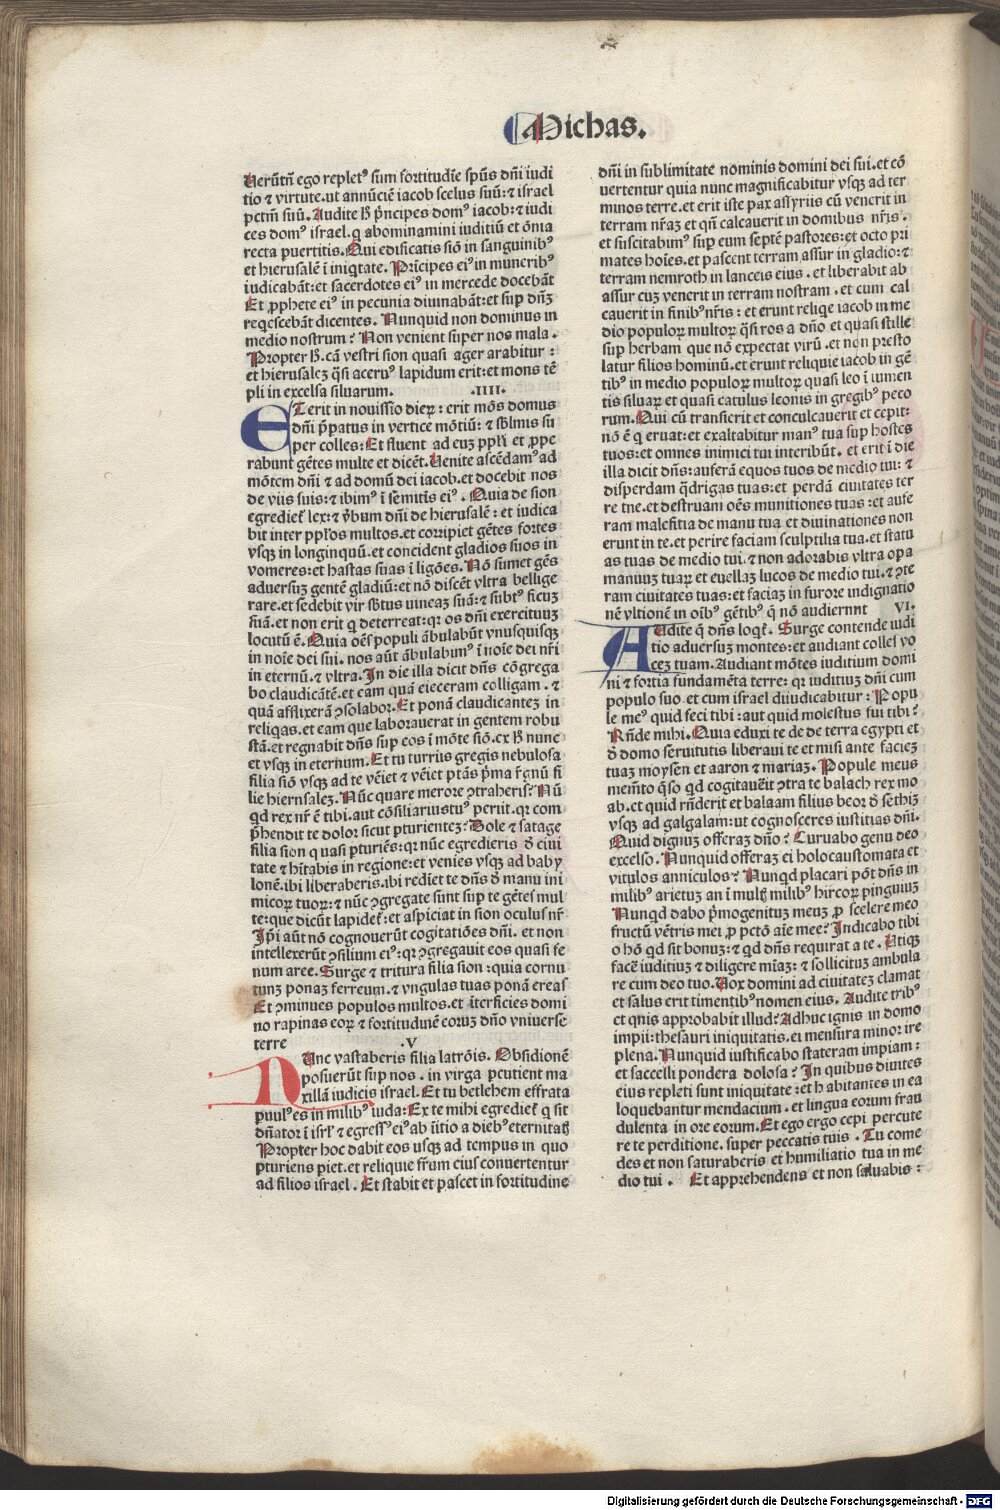 Michas.
Uerūtñ ego replet⁹ sum fortitudīe spūs dñi iudi
tio ⁊ virtute.ut annūciē iacob scelus suū:⁊ israel
pctm̄ suū. Audite h̄ p̄ncipes dom⁹ iacob:⁊ iudi
ces dom⁹ israel.q abominamini iuditiū et ōnia
recta puertitis. Qui edificatis siō in sanguinib⁹
et hierusalē ī iniqtate. Prīcipes ei⁹ in munerib⁹
iudicabāt:et sacerdotes ei⁹ in mercede docebāt
Et ꝓphete ei⁹ in pecunia diuinabāt:et sup dñꝫ
reqescebāt dicentes. Nunquid non dominus in
medio nostrum? Non venient super nos mala.
Propter h̄.cā vestri sion quasi ager arabitur :
et hierusaleꝫ q̄si aceru⁹ lapidum erit:et mons tē
pli in excelsa siluarum. .IIII.
ET erit in nouissīo dieꝝ : erit mōs domus
dñi p̄patus in vertice mōtiū: ⁊ sb̄lmis su
per colles: Et fluent ad euꝫ ppl̄i et ꝓpe
rabunt gētes multe et dicēt. Uenite ascēdam⁹ ad
mōtem dñi ⁊ ad domū dei iacob.et docebit nos
de viis suis:⁊ ibim⁹ ī semitis ei⁹. Quia de sion
egrediet̄ lex:⁊ v̄bum dñi de hierusalē : et iudica
bit inter ppl̄os multos.et corripiet gētes fortes
vsqꝫ in longinquū.et concident gladios suos in
vomeres:et hastas suas ī ligōes. Nō sumet gēs
aduersuꝫ gentē gladiū:et nō discēt vltra bellige
rare.et sedebit vir sb̄tus uineaꝫ suā:⁊ subt⁹ ficuꝫ
suā.et non erit q deterreat:qꝛ os dñi exercituuꝫ
locutū ē. Quia oēs populi ābulabūt vnusquisqꝫ
in noīe dei sui. nos aūt ābulabim⁹ ī noīe dei nr̄i
in eternū.⁊ vltra. In die illa dicit dñs cōgrega
bo claudicātē.et eam quā eieceram colligam . ⁊
quā afflixerā ꝯsolabor. Et ponā claudicanteꝫ in
reliqas.et eam que laborauerat in gentem robu
stā.et regnabit dñs sup eos ī mōte siō.ex h̄ nunc
et vsqꝫ in eternum. Et tu turris gregis nebulosa
filia siō vsqꝫ ad te vēiet ⁊ vēiet ptās p̄ma r̄gnū fi
lie hiernsaleꝫ. Nūc quare merore ꝯtraheris? Nū
qd rex nr̄ ē tibi.aut cōsiliariustu⁹ periit.qꝛ com
p̄hendit te dolor sicut pturienteꝫ? Dole ⁊ satage
filia sion quasi pturiēs:qꝛ nūc egredieris d̄ ciui
tate ⁊ hītabis in regione:et venies vsqꝫ ad baby
lonē.ibi liberaberis.ibi rediet te dñs d̄ manu ini
micoꝝ tuoꝝ:⁊ nūc ꝯgregate sunt sup te gētes mul
te:que dicūt lapidet̄:et aspiciat in sion oculus nr̄
Ip̄i aūt nō cognouerūt cogitatiōes dñi. et non
intellexerūt ꝯsilium ei⁹:qꝛ ꝯgregauit eos quasi fe
num aree. Surge ⁊ tritura filia sion :quia cornu
tunꝫ ponaꝫ ferreum.⁊ vngulas tuas ponā ereas
Et ꝯminues populos multos.et īterficies domi
no rapinas eoꝝ ⁊ fortitudinē eoruꝫ dño vniuerse
terre .V
NUnc vastaberis filia latrōis. Obsidionē
posuerūt sup nos . in virga pcutient ma
xillā iudicis israel. Et tu betlehem effrata
puul⁹ es in milib⁹ iuda: Ex te mihi egrediet̄ q sit
dñator ī isrl̄ ⁊ egress⁹ ei⁹ ab ītio a dieb⁹ eternitatꝭ
Propter hoc dabit eos usqꝫ ad tempus in quo
pturiens piet.et reliquie fr̄um eius conuertentur
ad filios israel . Et stabit et pascet in fortitudine
dñi in sublimitate nominis domini dei sui.et cō
uertentur quia nunc magnificabitur vsqꝫ ad ter
minos terre.et erit iste pax assyriis cū venerit in
terram nr̄aꝫ et qñ calcauerit in domibus nr̄is .
et suscitabim⁹ sup eum septē pastores:et octo pri
mates hoīes.et pascent terram assur in gladio:⁊
terram nemroth in lanceis eius . et liberabit ab
assur cuꝫ venerit in terram nostram . et cum cal
cauerit in finib⁹nr̄is : et erunt reliqe iacob in me
dio populoꝝ multoꝝ q̄si ros a dño et quasi stille
sup herbam que nō expectat virū . et non presto
latur filios hominū.et erunt reliquie iacob in gē
tib⁹ in medio populoꝝ multoꝝ quasi leo ī iumen
tis siluaꝝ et quasi catulus leonis in gregib⁹ peco
rum. Qui cū transierit et conculcauerit et cepit:
nō ē q eruat:et exaltabitur man⁹ tua sup hostes
tuos:et omnes inimici tui interibūt. et erit ī die
illa dicit dñs:auferā equos tuos de medio tui: ⁊
disperdam q̄drigas tuas:et perdā ciuitates ter
re tue.et destruam oēs munitiones tuas :et aufe
ram malefitia de manu tua et diuinationes non
erunt in te.et perire faciam sculptilia tua.et statu
as tuas de medio tui.⁊ non adorabis vltra opa
manuuꝫ tuaꝝ et euellaꝫ lucos de medio tui.⁊ ꝯte
ram ciuitates tuas:et faciaꝫ in furore indignatio
nē vltionē in oīb⁹ gētib⁹ q nō audiernnt VI.
AUdite q̄ dñs loqt̄. Surge contende iudi
tio aduersuꝫ montes:et audiant colles vo
ceꝫ tuam. Audiant mōtes iuditium domi
ni ⁊ fortia fundamēta terre: qꝛ iudituꝫ dñi cum
populo suo et cum israel diiudicabitur : Popu
le me⁹ quid feci tibi :aut quid molestus fui tibi?
Rn̄de mihi. Quia eduxi te de de terra egypti et
d̄ domo seruitutis liberaui te et misi ante facieꝫ
tuaꝫ moysen et aaron ⁊ mariaꝫ. Popule meus
mem̄to q̄so qd cogitauēit ꝯtra te balach rex mo
ab.et quid rn̄derit et balaam filius beor d̄ sethiꝫ
vsqꝫ ad galgalam:ut cognosceres iustitias dñi.
Quid dignuꝫ offeraꝫ dño? Curuabo genu deo
excelso. Nunquid offeraꝫ ei holocaustomata et
vitulos anniculos? Nunqd placari pōt dñs in
milib⁹ arietuꝫ an ī multꝭ milib⁹ hircoꝝ pinguiuꝫ
Nunqd dabo p̄mogenituꝫ meuꝫ ꝓ scelere meo
fructū vētris mei ꝓ pctō aīe mee? Indicabo tibi
o hō qd sit bonuꝫ:⁊ qd dñs requirat a te . Utiqꝫ
facē iudituꝫ ⁊ diligere mīaꝫ: ⁊ sollicituꝫ ambula
re cum deo tuo. Uox domini ad ciuitateꝫ clamat
et salus erit timentib⁹nomen eius. Audite trib⁹
et quis approbabit illud? Adhuc ignis in domo
impii:thesauri iniquitatis.et mensura minor ire
plena. Nunquid iustificabo stateram impiam:
et saccelli pondera dolosa? In quibus diuites
eius repleti sunt iniquitate :et habitantes in ea
loquebantur mendacium . et lingua eorum frau
dulenta in ore eorum. Et ego ergo cepi percute
re te perditione. super peccatis tuis . Tu come
des et non saturaberis et humiliatio tua in me
dio tui . Et apprehendens et non saluabis :
Digitalisierung gefördert durch die Deutsche Forschungsgemeinschaft - DFG